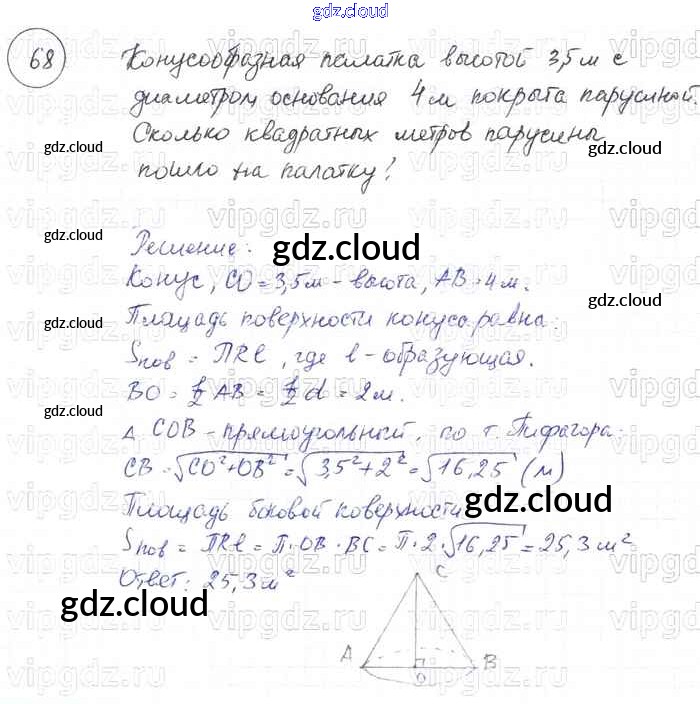 gdz.cloud
68
Конусообразная палатка высотой 3,5 м с
диаметром основания 4 м покрыта парусиной.
Сколько квадратных метров парусины
пошло на палатку?
gdz.cloud
gdz.cloud
gdz.cloud
Решение:
gdz.cloud
gdz.cloud
Конус, CO = 3,5 м - высота, AB = 4 м.
gdz.cloud
Площадь поверхности конуса равна:
gdz.cloud
Sпов = ПRℓ, где ℓ - образующая.
BO = 1/2 AB = 1/2 d = 2 м.
gdz.cloud
△ COB - прямоугольный, по т. Пифагора:
CB = √CO²+OB² = √3,5²+2² = √16,25 (м)
Площадь боковой поверхности
gdz.cloud
Sпов = ПRℓ = П·OB·BC = П·2·√16,25 = 25,3 м²
Ответ: 25,3 м²
gdz.cloud
C
A
O
B
vipgdz.ru